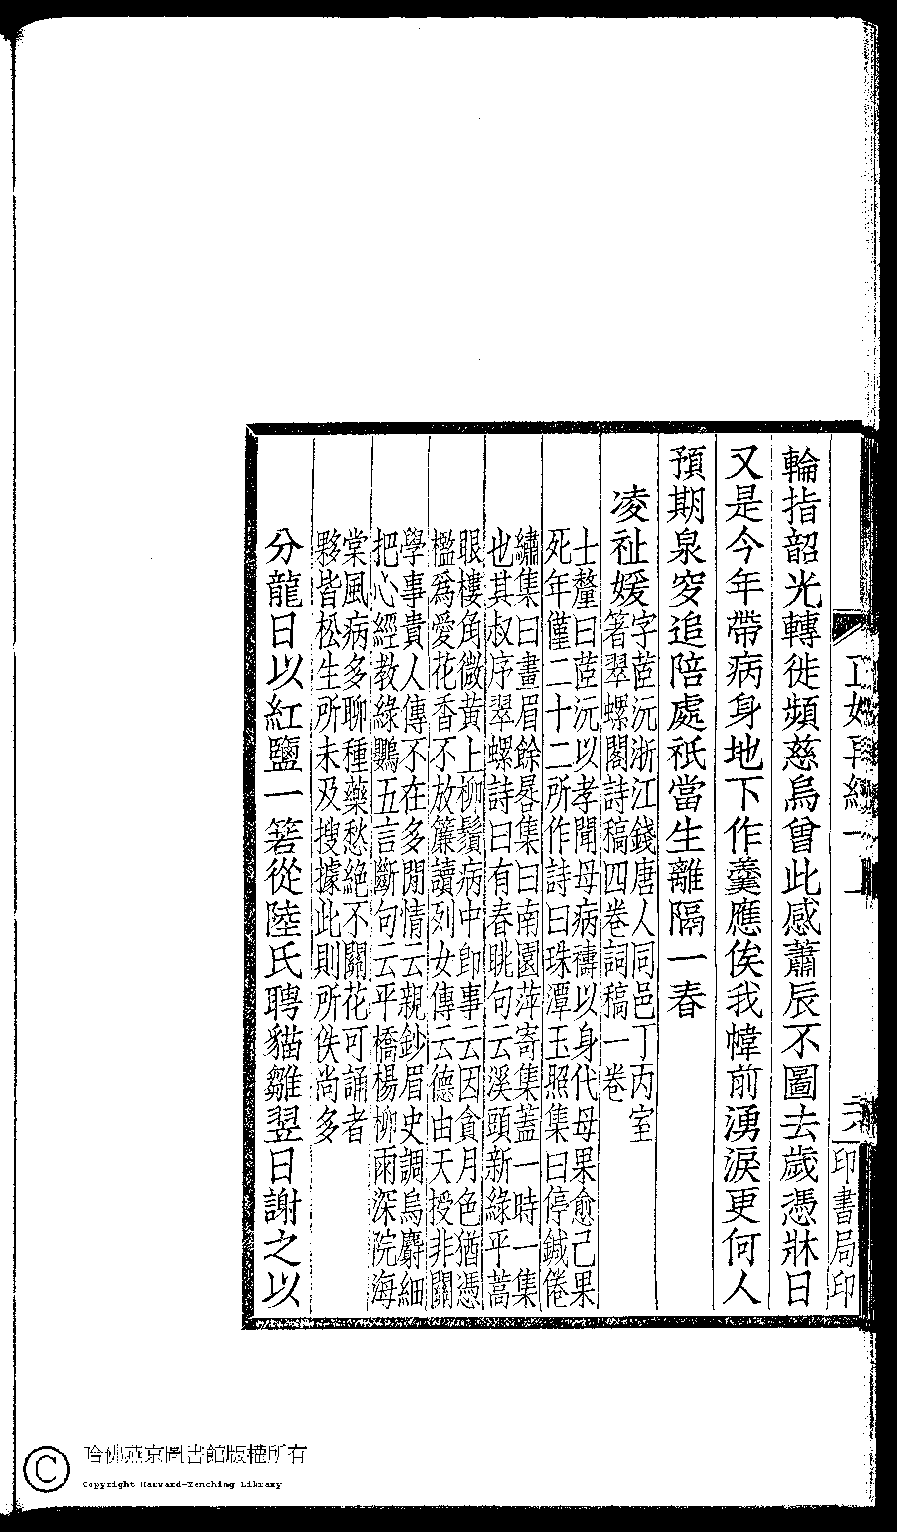 印書局印
輪指韶光轉徙頻慈烏曾此感蕭辰不圖去歲憑牀日
又是今年帶病身地下作羹應俟我幃前湧淚更何人
預期泉穸追陪處祇當生離隔一春
凌祉媛
字茞沅浙江錢唐人同邑丁丙室
著翠螺閣詩稿四卷詞稿一卷
士釐曰茞沅以孝聞母病禱以身代母果愈己果
死年僅二十二所作詩曰珠潭玉照集曰停鍼倦
繡集曰畫眉餘晷集曰南園萍寄集蓋一時一集
也其叔序翠螺詩曰有春眺句云溪頭新綠平蒿
眼樓角微黃上柳鬚病中卽事云因貪月色猶憑
檻爲愛花香不放簾讀列女傳云德由天授非關
學事貴人傳不在多閒情云親鈔眉史調烏麝細
把心經教綠鸚五言斷句云平橋楊柳雨深院海
棠風病多聊種藥愁絕不關花可誦者
夥皆松生所未及搜據此則所佚尚多
分龍日以紅鹽一箬從陸氏聘貓雛翌日謝之以
哈佛燕京圖書館版權所有
Copyright Harvard-Yenching Library